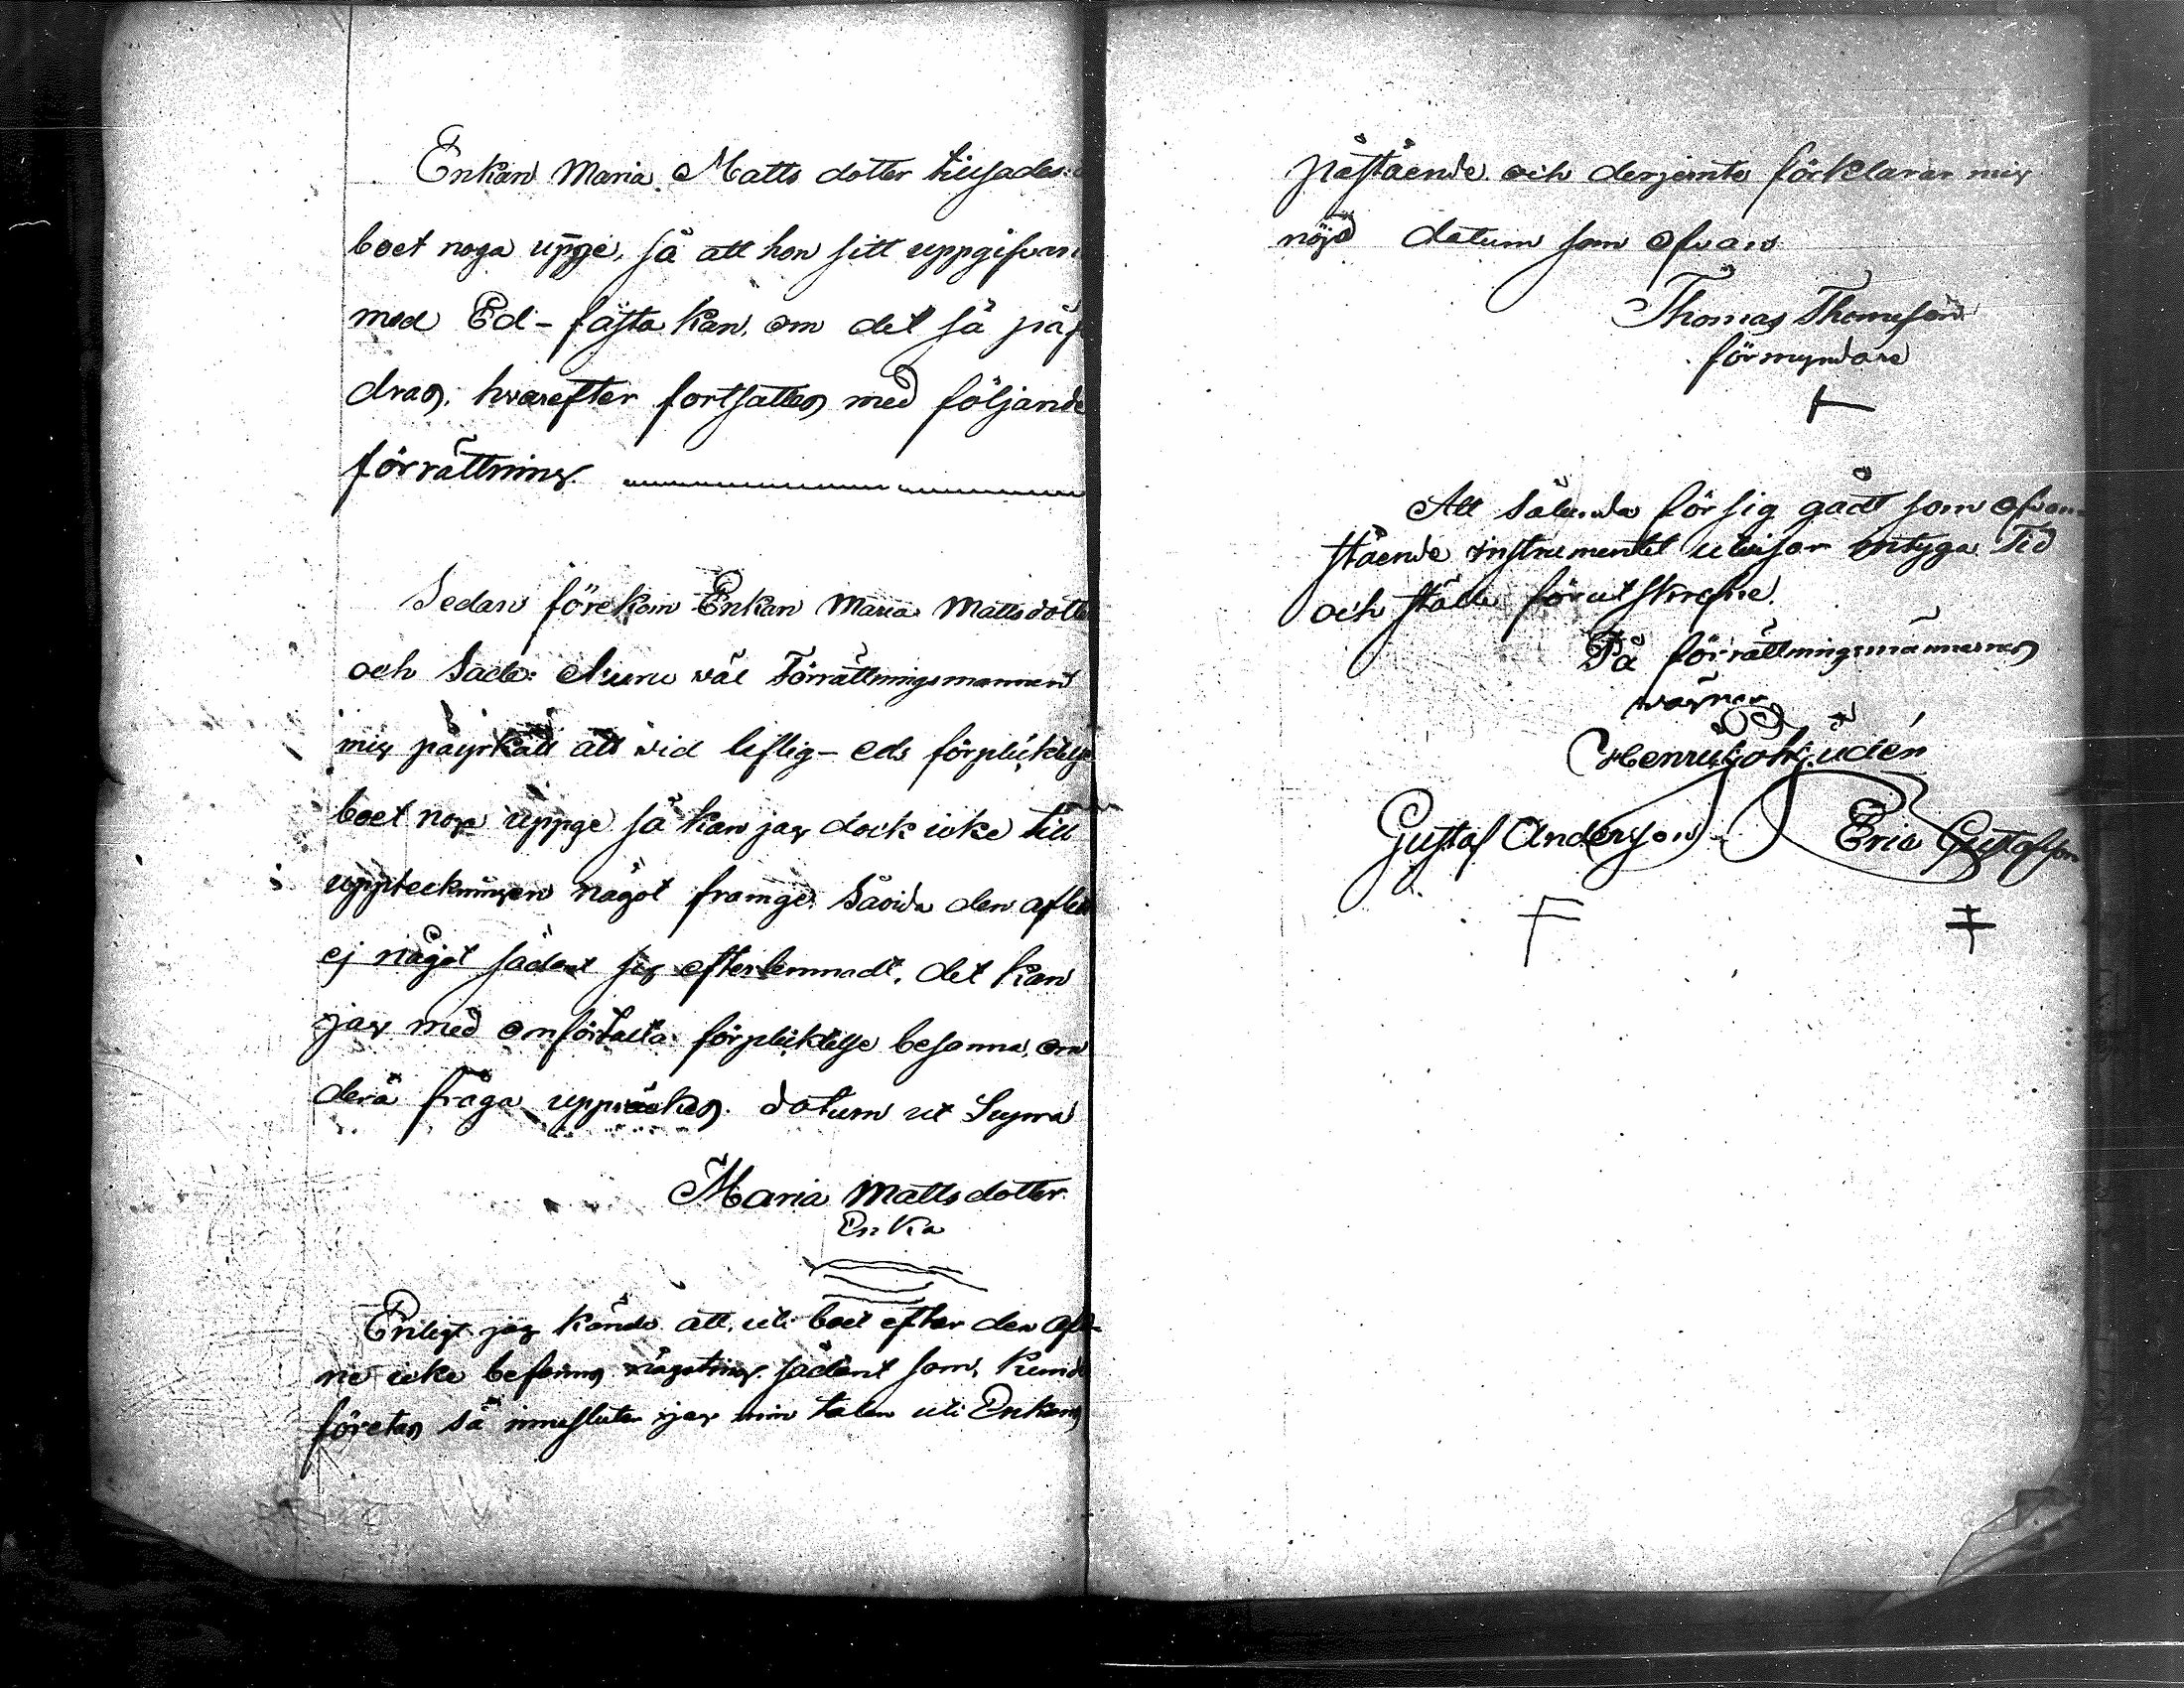 Enkan Maria Matts dotter tillsades
boet noga uppge, så att hon sitt uppgifvan
med Ed- fästa kan, om det så påf
dras, hvarefter fortsattes med följande
förrättning.
Sedan förekom Enkan Maria Mattsdotte
och Sade: Ännu väl Förrättningsmannen
mig påyrkadt att vid liflig- eds förpliktelse
boet noga uppge så kan jag dock icke till
uppteckningen något framge. Såvida den afled
ej något sådant sig efterlemnadt, det kan
jag med omförtalta förpliktelse besanna, om
derå fråga uppväckes. datum ut Supra
Maria Mattsdotter
Enka
Enligt jag kände att uti boet efter den afled-
ne icke befanns någonting sådant som kund
företas så innesluter jag min talan uti Enkans
påstående och derjemte förklarar mig
nöjd datum som ofvan
Thomas Thomeson
förmyndare
Att sålunda försig gådt som ofvan-
stående instrumentet utvisar intyga Tid
och ställe förutskrefne.
På förrättningsmannens
vägnar
Gustaf Anderson Eric Gustafson